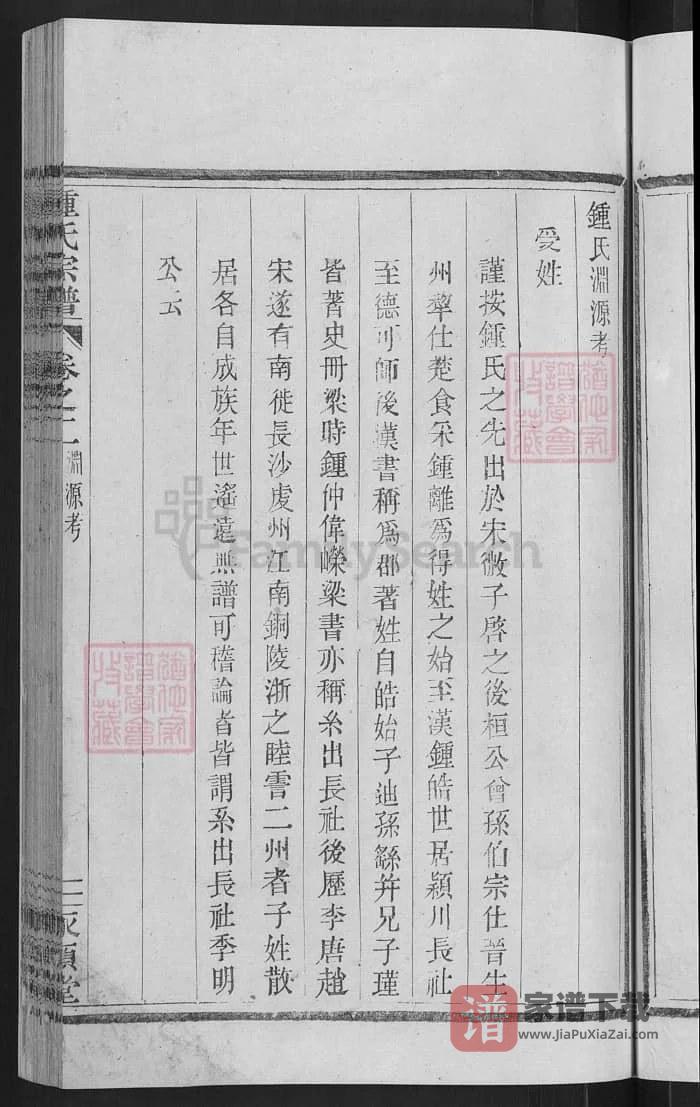 鍾氏淵源考
受姓
謹按鍾氏之先出於宋微子啓之後桓公曾孫伯宗仕晉生
州犂仕楚食采鍾離爲得姓之始至漢鍾皓世居潁川長社
至德可師後漢書稱爲郡著姓自皓始子迪孫繇幷兄子瑾
皆著史冊梁時鍾仲偉嶸梁書亦稱系出長社後歷李唐趙
宋遂有南徙長沙虔州江南銅陵浙之睦霅二州者子姓散
居各自成族年世遙遠無譜可稽論者皆謂系出長社季明
公云
鍾氏宗譜 卷之二 淵源考
堂
猶他家譜學會收藏
猶他家譜學會收藏
FamilySearch
谱 家谱下载
www.JiaPuXiaZai.com